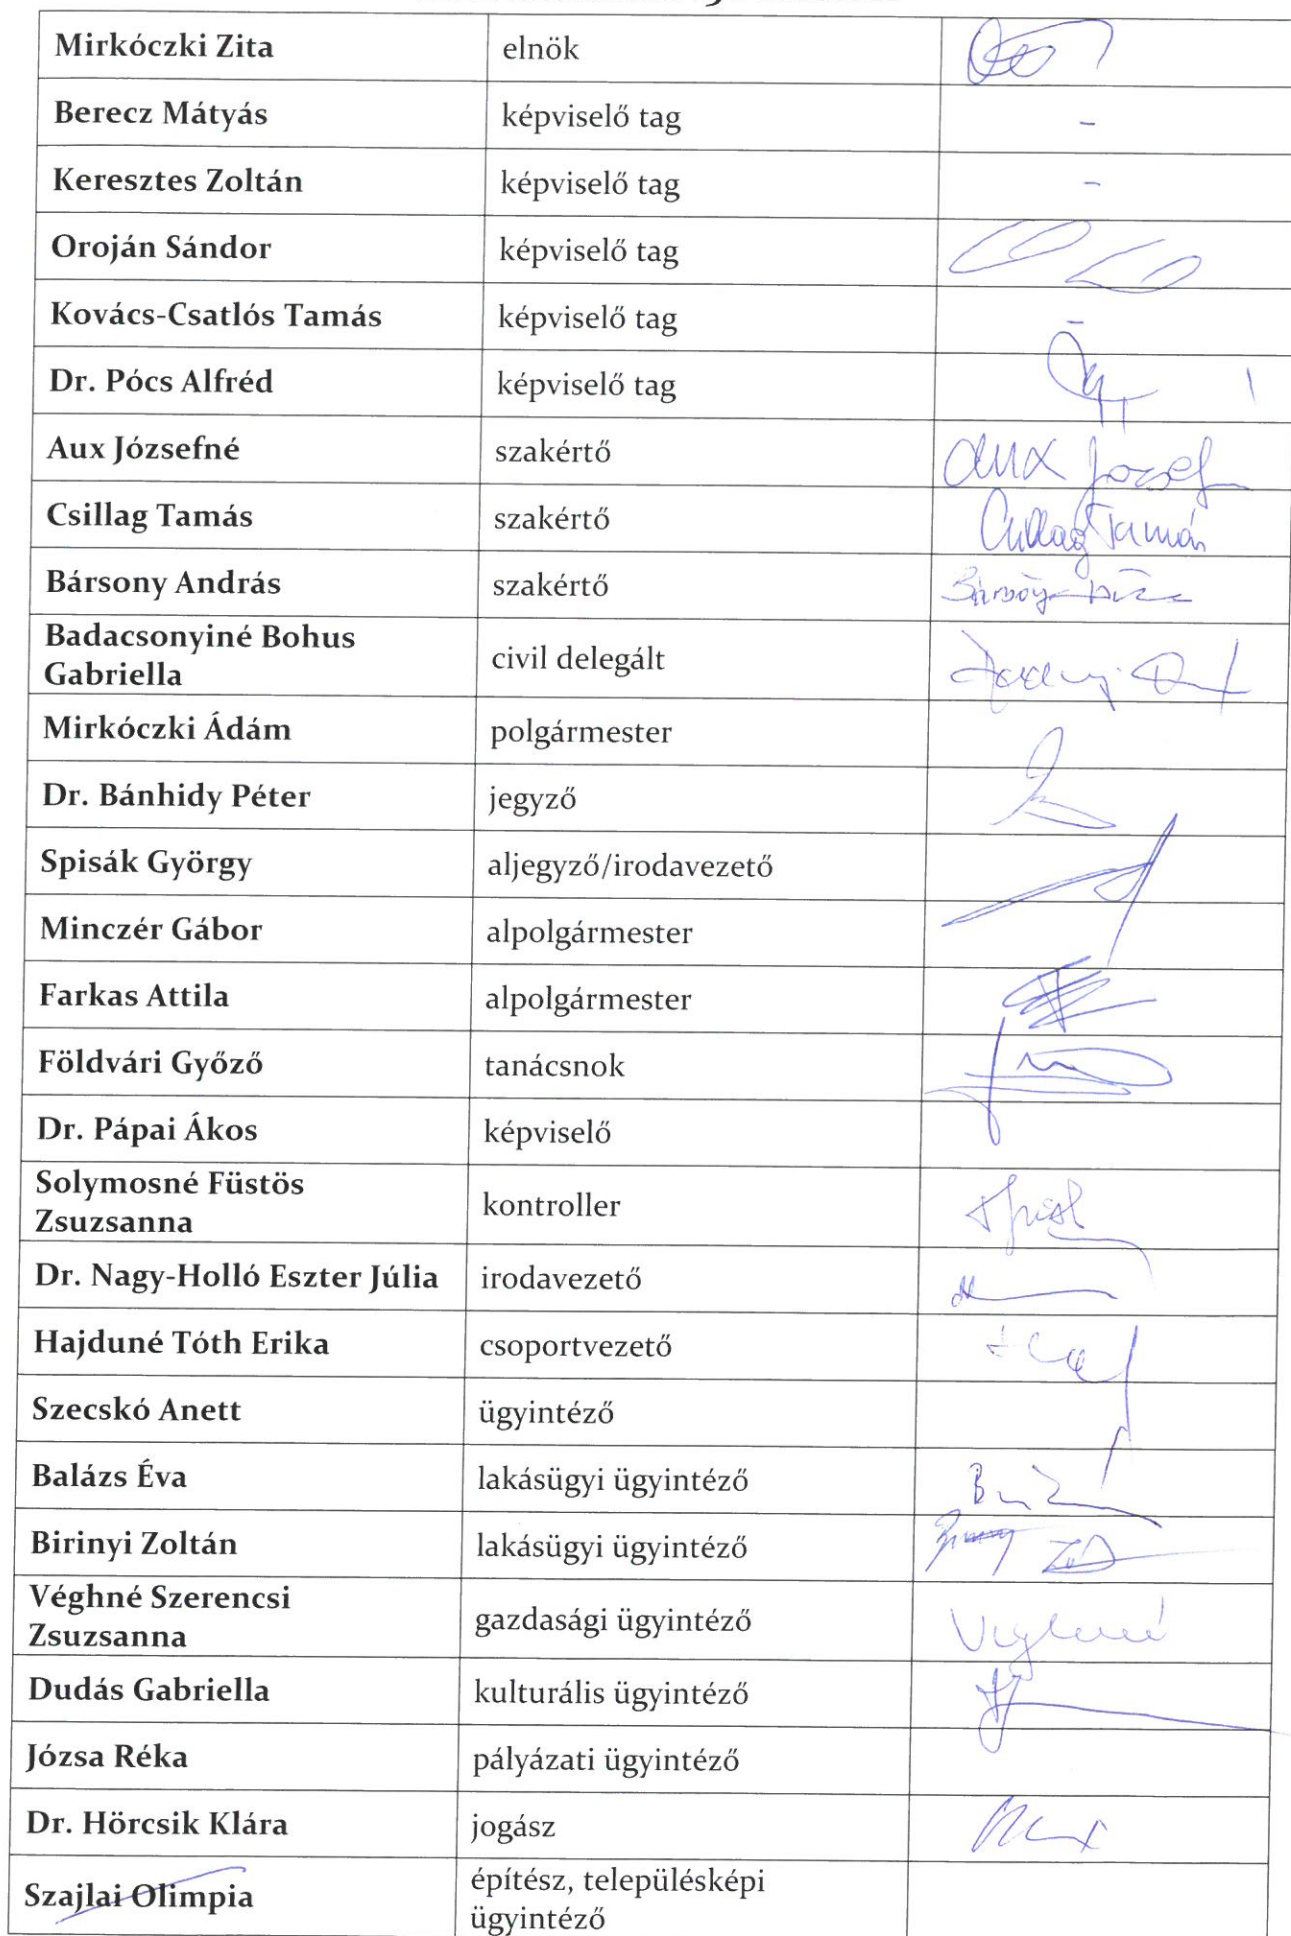 Mirkóczki Zita elnök
Berecz Mátyás képviselő tag -
Keresztes Zoltán képviselő tag -
Oroján Sándor képviselő tag
Kovács-Csatlós Tamás képviselő tag -
Dr. Pócs Alfréd képviselő tag
Aux Józsefné szakértő Aux József
Csillag Tamás szakértő Csillag Tamás
Bársony András szakértő Bársony
Badacsonyiné Bohus
Gabriella civil delegált
Mirkóczki Ádám polgármester
Dr. Bánhidy Péter jegyző
Spisák György aljegyző/irodavezető
Minczér Gábor alpolgármester
Farkas Attila alpolgármester
Földvári Győző tanácsnok
Dr. Pápai Ákos képviselő
Solymosné Füstös
Zsuzsanna kontroller
Dr. Nagy-Holló Eszter Júlia irodavezető
Hajduné Tóth Erika csoportvezető
Szecskó Anett ügyintéző
Balázs Éva lakásügyi ügyintéző
Birinyi Zoltán lakásügyi ügyintéző
Véghné Szerencsi
Zsuzsanna gazdasági ügyintéző Véghné
Dudás Gabriella kulturális ügyintéző
Józsa Réka pályázati ügyintéző
Dr. Hörcsik Klára jogász
Szajlai Olimpia építész, településképi
ügyintéző